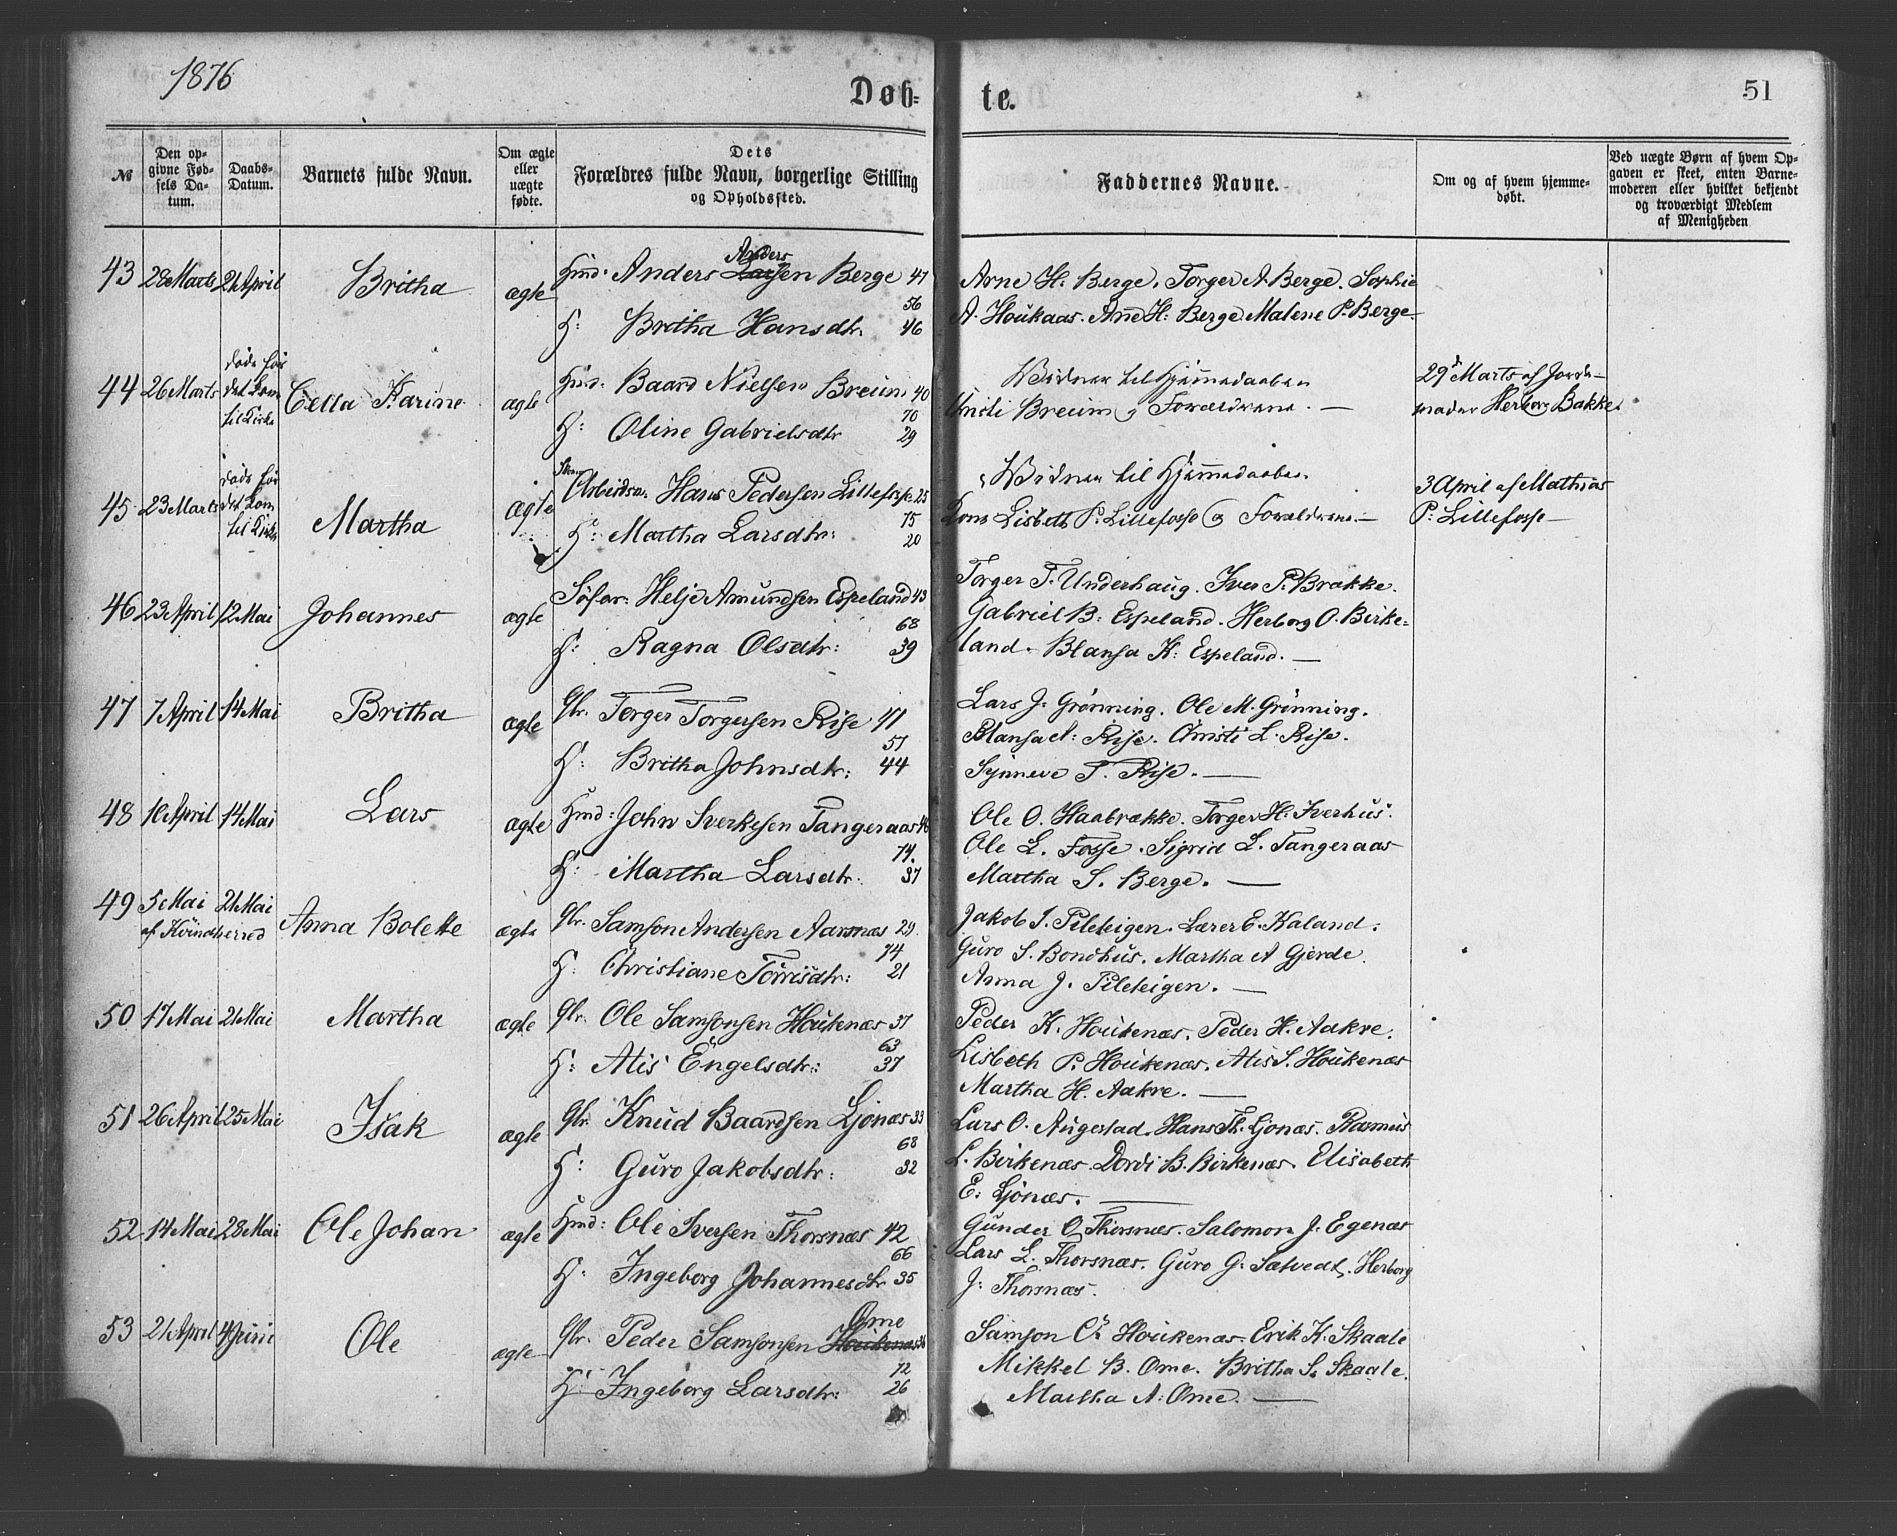 1876
Døb-
te.
51
№
Den op-
givne Fød-
sels Da-
tum.
Daabs-
Datum.
Barnets fulde Navn.
Om ægte
eller
uægte
fødte.
Dets
Forældres fulde Navn, borgerlige Stilling
og Opholdssted.
Faddernes Navne.
Om og af hvem hjemme-
døbt.
Ved uægte Børn af hvem Op-
gaven er skeet, enten Barne-
moderen eller hvilket bekjendt
og troværdigt Medlem
af Menigheden
Anders
43 28 Marts 21 April Britha ægte Huusmd: Anders Larsen Berge 47
56
H: Britha Hansdtr. 46
Arne H: Berge. Torger A. Berge. Sophie
A. Houkaas. Anne H: Berge. Malene P. Berge.
44 26 Marts døde før
det kom
til Kirke
Cella Karine ægte Huusmd: Baard Nielsen Breum 40
70
H: Oline Gabrielsdtr 29
Vidner til Hjemmedaaben
Christi Breum og Forældrene. —
29d Marts af Jorde-
moder Herborg Bakke.
45 23 Marts døde før
det kom
til Kirke
Martha ægte Arbeidsm: Hans Pedersen Lillefosse 25
75
H: Martha Larsdtr: 20
Vidner til Hjemmedaaben
Kone Lisbeth P: Lillefosse og Forældrene. —
3 April af Mathias
P: Lillefosse —
46 23 April 12 Mai Johannes ægte Søfar: Helje Amundsen Espeland 43
68
H: Ragna Olsdtr: 39
Torger T. Underhaug. Iver P. Brække.
Gabriel B: Espeland. Herborg O. Birke-
land. Blansa K: Espeland. —
47 7 April 14 Mai Britha ægte Gbr. Torger Torgersen Rise 41
51
H: Britha Johnsdtr: 44
Lars J. Grønning. Ole M. Grønning.
Blansa A: Rise. Christi L. Rise.
Synneve T. Rise. —
48 10 April 14 Mai Lars ægte Huusmd: John Sverkesen Tangeraas 46
74.
H: Martha Larsdtr. 37
Ole O. Haabrække. Torger H. Iverhus.
Ole L. Fosse. Sigrid L. Tangeraas
Martha S. Berge. —
49 5 Mai 21 Mai
af Kvindherred
Anna Bolette ægte Gbr. Samson Andersen Aarsnæs 29.
74
H: Christiane Tørrisdtr: 21
Jakob J. Pileteigen. Lærer E. Kaland.
Guro S. Bondhus. Martha A Gjerde.
Anna J. Pileteigen. —
50 17 Mai 21 Mai Martha ægte Gbr. Ole Samsonsen Houkenæs 37
63
H: Atis Engelsdtr: 37
Peder K. Houkenæs. Peder H. Aakre.
Lisbeth P. Houkenæs. Atis S. Houkenæs
Martha H. Aakre. —
51 26 April 25 Mai Isak ægte Gbr. Knud Baardsen Ljønæs 33
68
H: Guro Jakobsdtr: 32
Lars O. Augestad. Hans Th. Ljonæs. Rasmus
L. Birkenæs. Dordi B. Birkenæs. Elisabeth
E: Ljonæs. —
52 14 Mai 28 Mai Ole Johan ægte Huusmd: Ole Iversen Thorsnæs 42
66
H: Ingeborg Johannesdtr 35
Gunder O. Thorsnæs. Salomon J. Egenæs
Lars L. Thorsnæs. Guro G. Sætvedt. Herborg
J: Thorsnæs.
Ome
53 21 April 4 Juni Ole ægte Gbr. Peder Samsonsen Houkenæs 36
72
H: Ingeborg Larsdtr: 26
Samson C. Houkenæs. Erik K. Skaale
Mikkel B. Ome. Britha S. Skaale.
Martha A: Ome. —